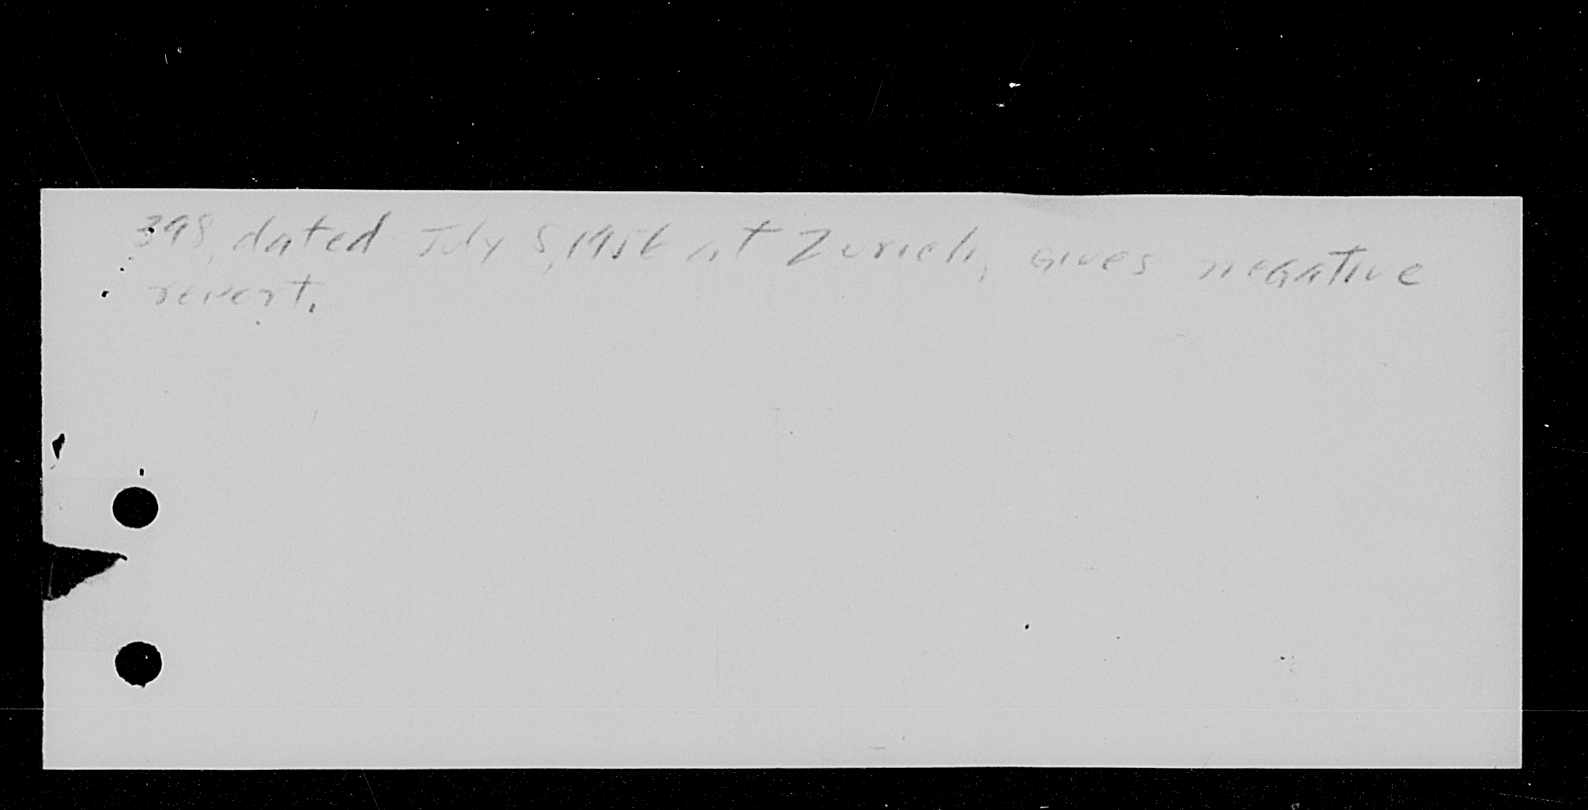 398, dated July 5, 1956 at Zurich, gives negative
report.